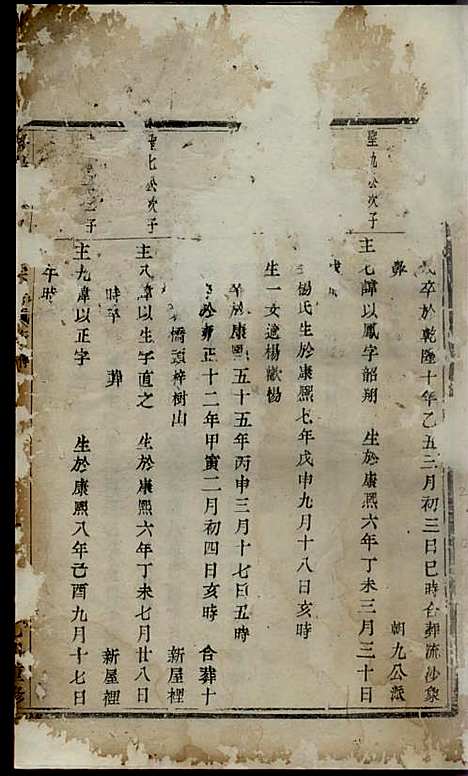 卒於乾隆十年乙丑三月初三日巳時合葬流沙象
葬 朝九公派
聖九公次子
主七諱以鳳字韶翔 生於康熙六年丁未三月三十日
楊氏生於康熙七年戊申九月十八日亥時
生一女適楊歐楊
於康熙五十五年丙申三月十七日丑時
於雍正十二年甲寅二月初四日亥時 合葬十
橋頭梓樹山 新屋裡
聖七公次子
主八諱以生字直之 生於康熙六年丁未七月廿八日
時卒 葬 新屋裡
子
主九諱以正字 生於康熙八年己酉九月十七日
午時